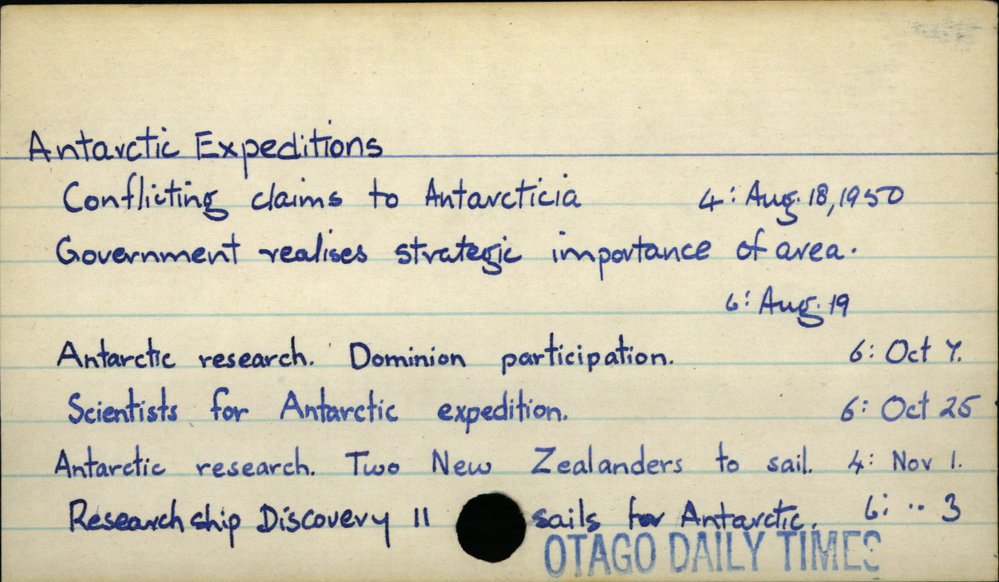 Antarctic Expeditions
Conflicting claims to Antarcticia 4: Aug. 18, 1950
Government realises strategic importance of area.
6: Aug. 19
Antarctic research. Dominion participation. 6: Oct 7.
Scientists for Antarctic expedition. 6: Oct 25
Antarctic research. Two New Zealanders to sail. 4: Nov 1.
Research ship Discovery II sails for Antarctic. 6: .. 3
OTAGO DAILY TIMES